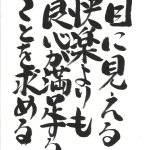 目に見える
快楽よりも
良心が満足する
ことを求める